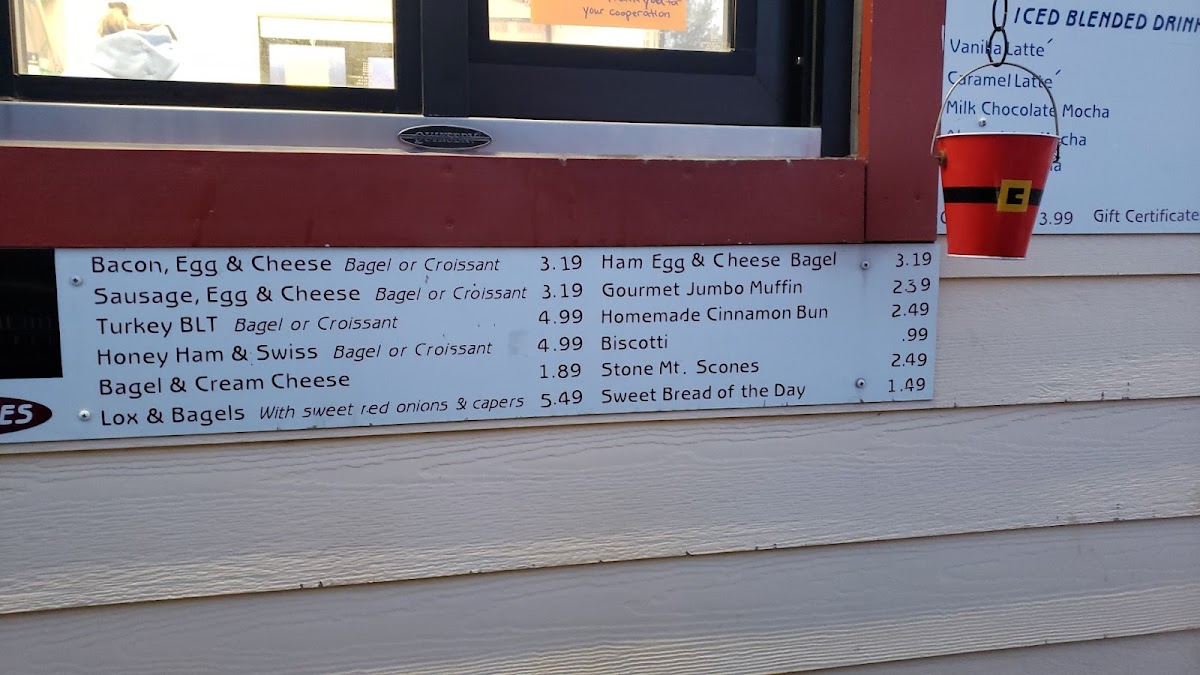 Thank you for
your cooperation
QUIKSERV
ICED BLENDED
Vanilla Latte´
Caramel Latte´
Milk Chocolate Mocha
3.99 Gift Certificate
Bacon, Egg & Cheese Bagel or Croissant 3.19
Sausage, Egg & Cheese Bagel or Croissant 3.19
Turkey BLT Bagel or Croissant 4.99
Honey Ham & Swiss Bagel or Croissant 4.99
Bagel & Cream Cheese 1.89
Lox & Bagels With sweet red onions & capers 5.49
Ham Egg & Cheese Bagel 3.19
Gourmet Jumbo Muffin 2.39
Homemade Cinnamon Bun 2.49
Biscotti .99
Stone Mt. Scones 2.49
Sweet Bread of the Day 1.49